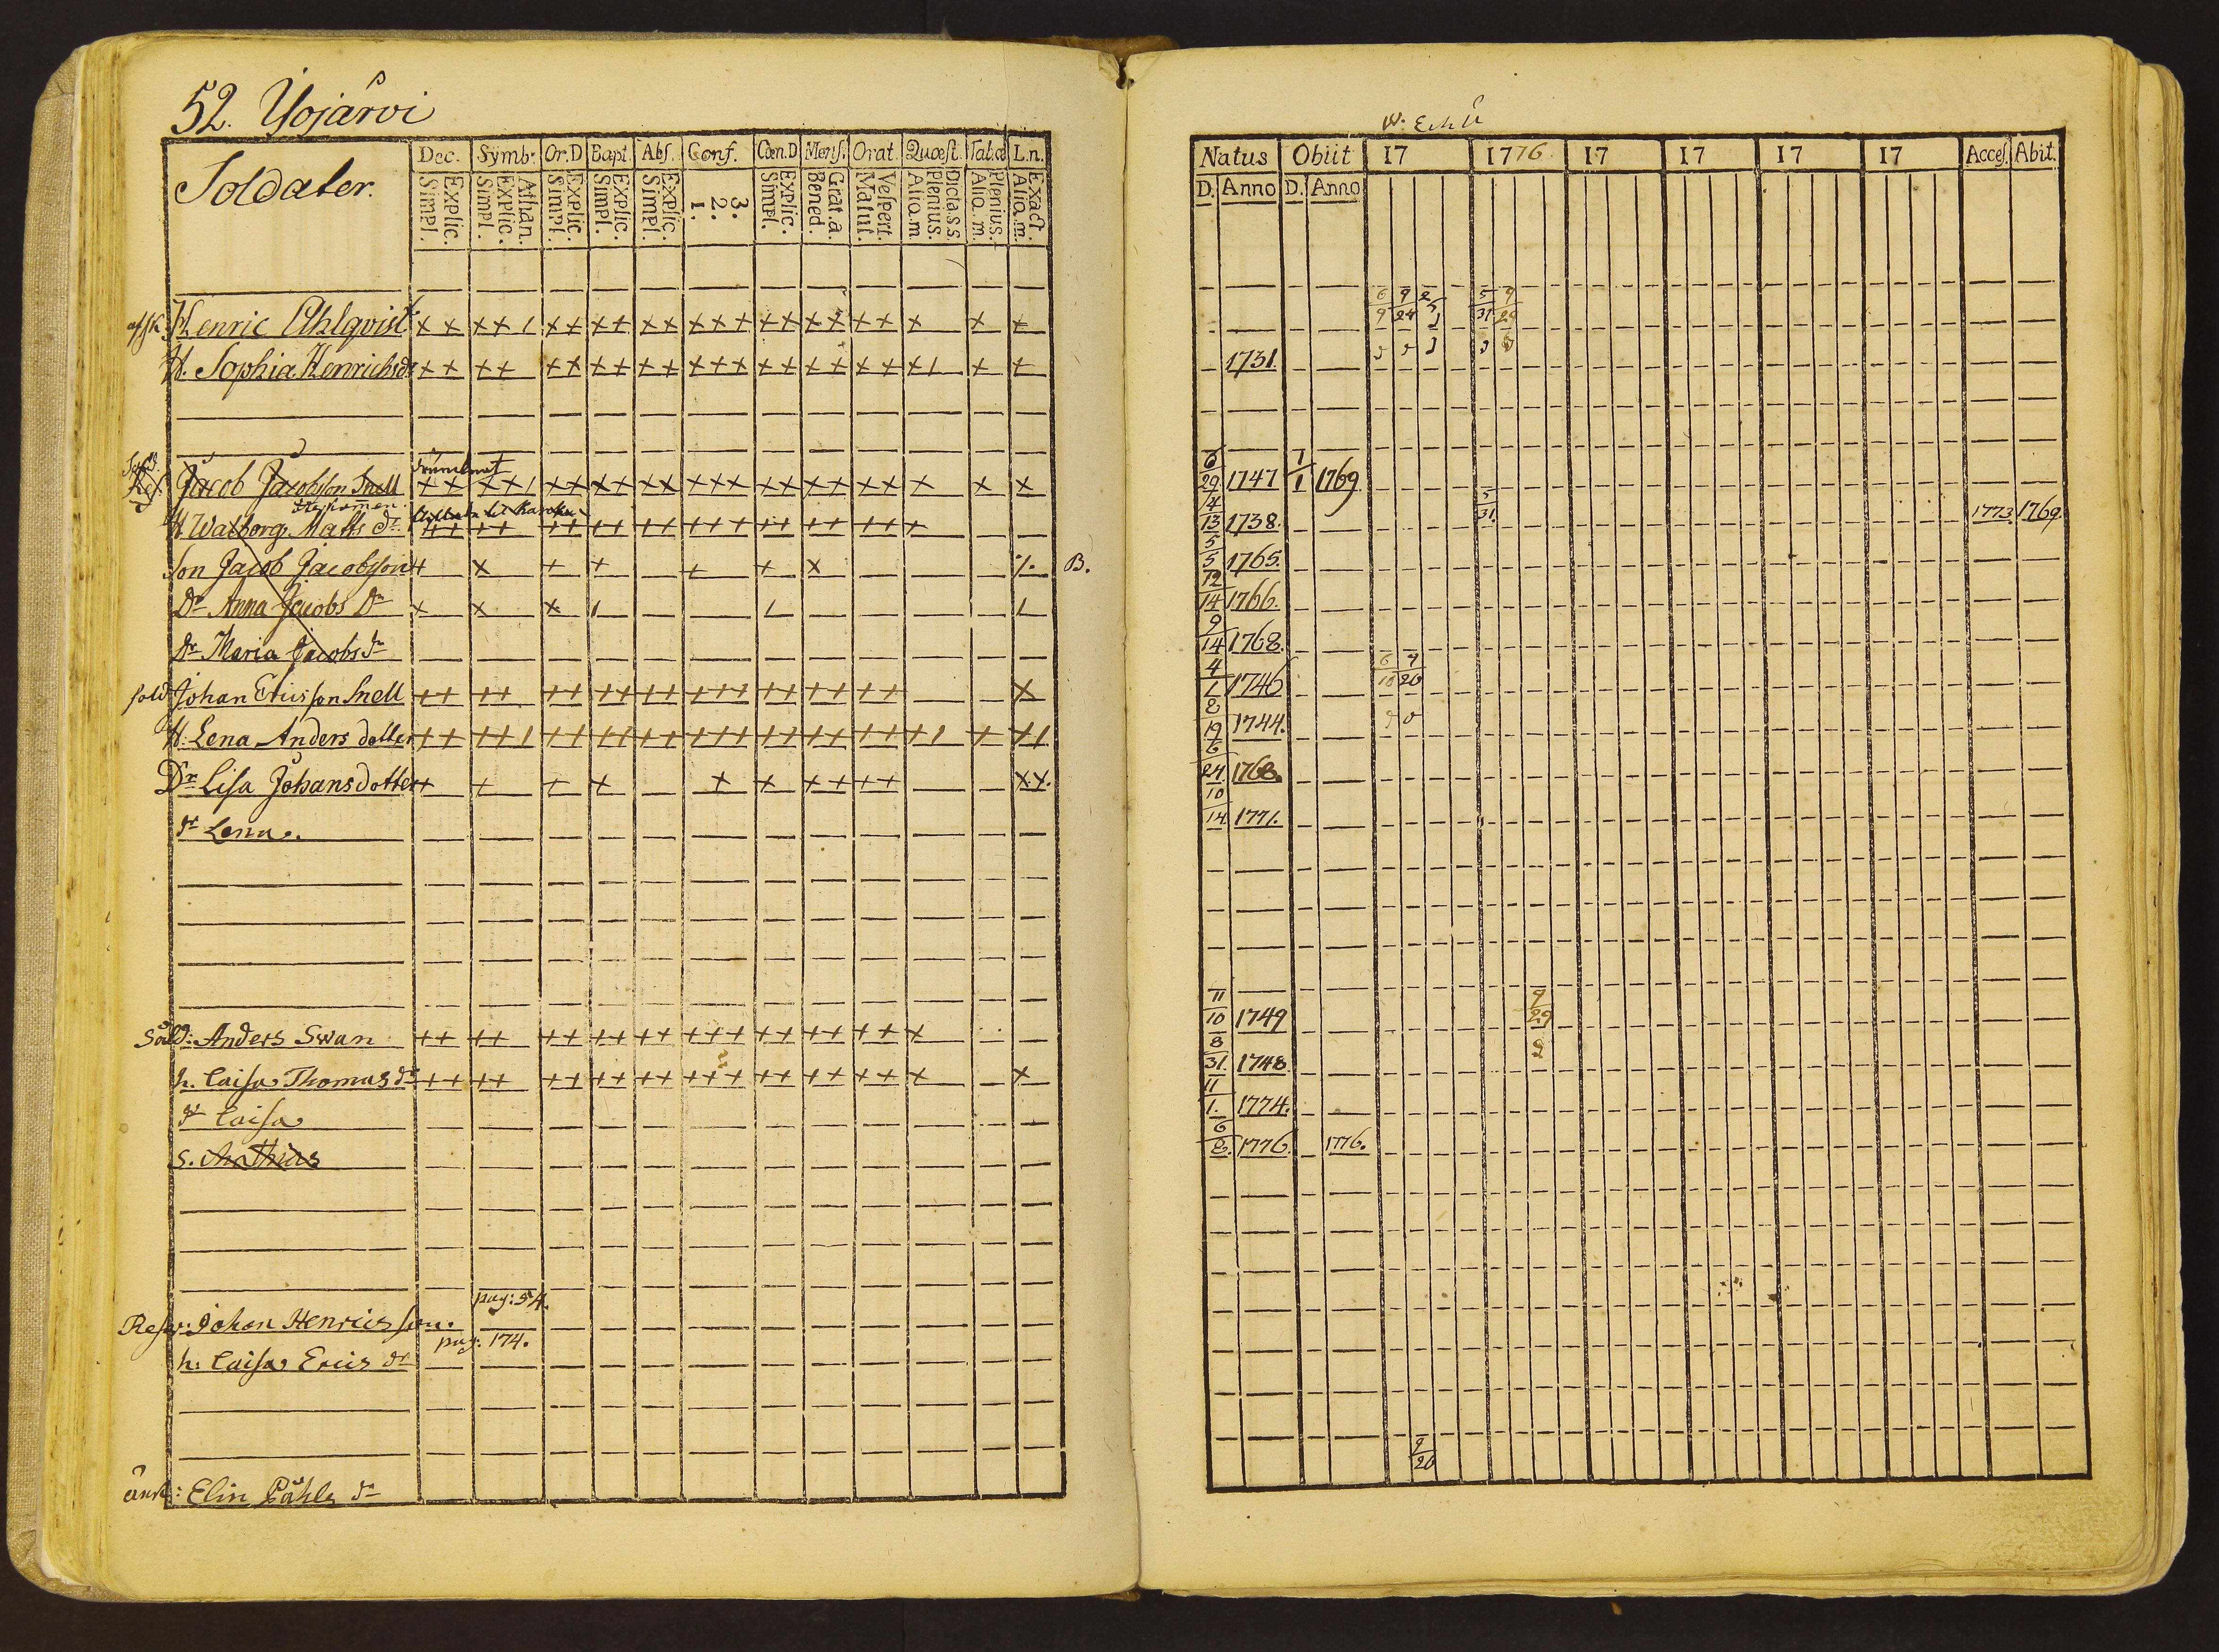 52. Yöjärvi
Soldater.
Dec. Symb. Or.D Bapt. Abs. Conf. Cœn.D Mens. Orat. Quæst. Tab.œ L.n.
Explic. Simpl. Athan. Explic. Simpl. Explic. Simpl. Explic. Simpl. Explic. Simpl. 3. 2. 1. Explic. Simpl. Grat.a. Bened. Vespert. Matut. Dicta.s.s. Plenius. Aliq.m Plenius. Aliq.m. Exact. Aliq.m.
afsk. Henric Ahlqvist
H. Sophia Henrichsdr
Jacob Jacobsson Snell
H. Walborg Matts dr
Son Jacob Jacobsson B.
Dr Anna Jacobs Dr
Dr Maria Jacobs dr
sold Johan Ericsson Snell
H. Lena Anders dotter
Dr Lisa Johans dotter
dr Lena.
Sold: Anders Swan
h. Caisa Thomas dr
dr Caisa
s. Mathias
pag: 54.
Resv: Johan Henrics son.
pag: 174.
h. Caisa Erics dr
änk: Elin Påhls dr
Natus Obiit 17 1776 17 17 17 17 Acces. Abit.
D. Anno D. Anno
6/9 9/24 5/31 9/29
1731.
6/29 1747 1/1 1769
14/13 1738. 5/31. 1773 1769.
5/5 1765.
12/14 1766.
9/14 1768.
4/1 1746 6/10 9/20
8/19 1744.
6/24 1768.
10/14 1771.
11/10 1749 9/29
8/31. 1748
11/1. 1774.
6/8. 1776. 1776.
9/20